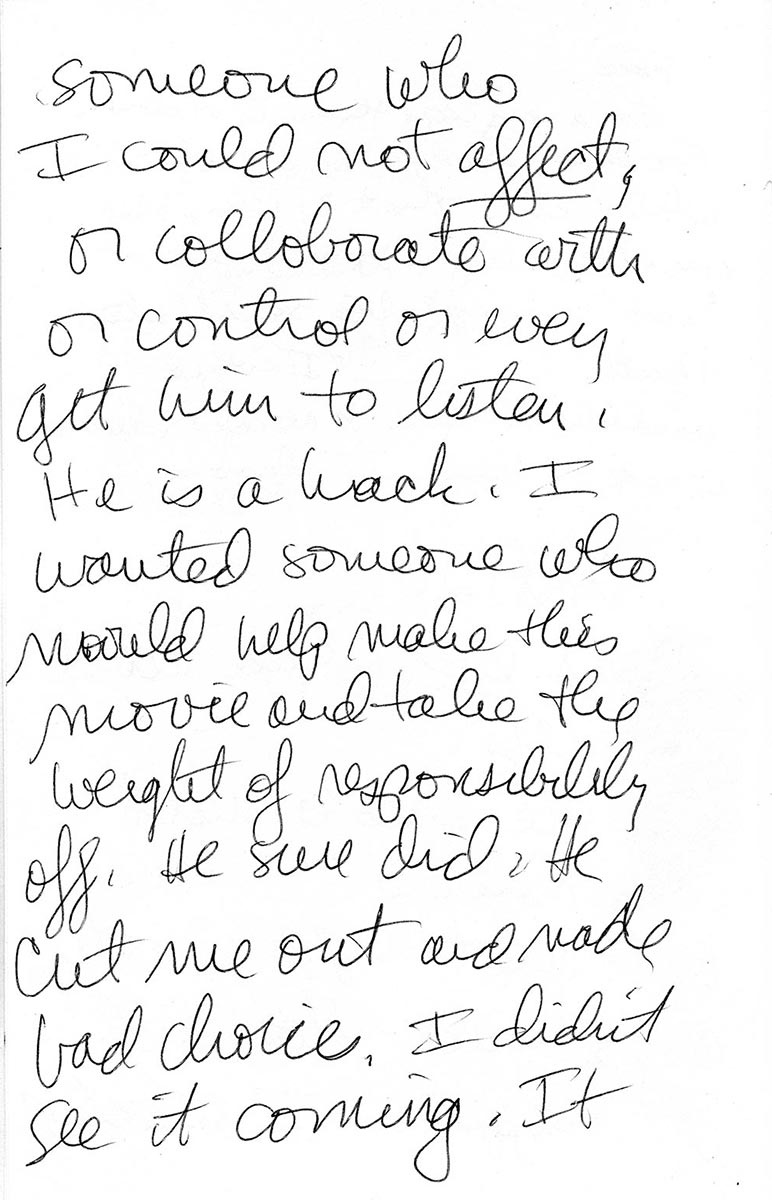 someone who
I could not affect,
or colloborate with
or control or even
get him to listen.
He is a hack. I
wanted someone who
would help make this
movie and take the
weight of responsibility
off. He sure did. He
cut me out and made
bad choice. I didn't
see it coming. It